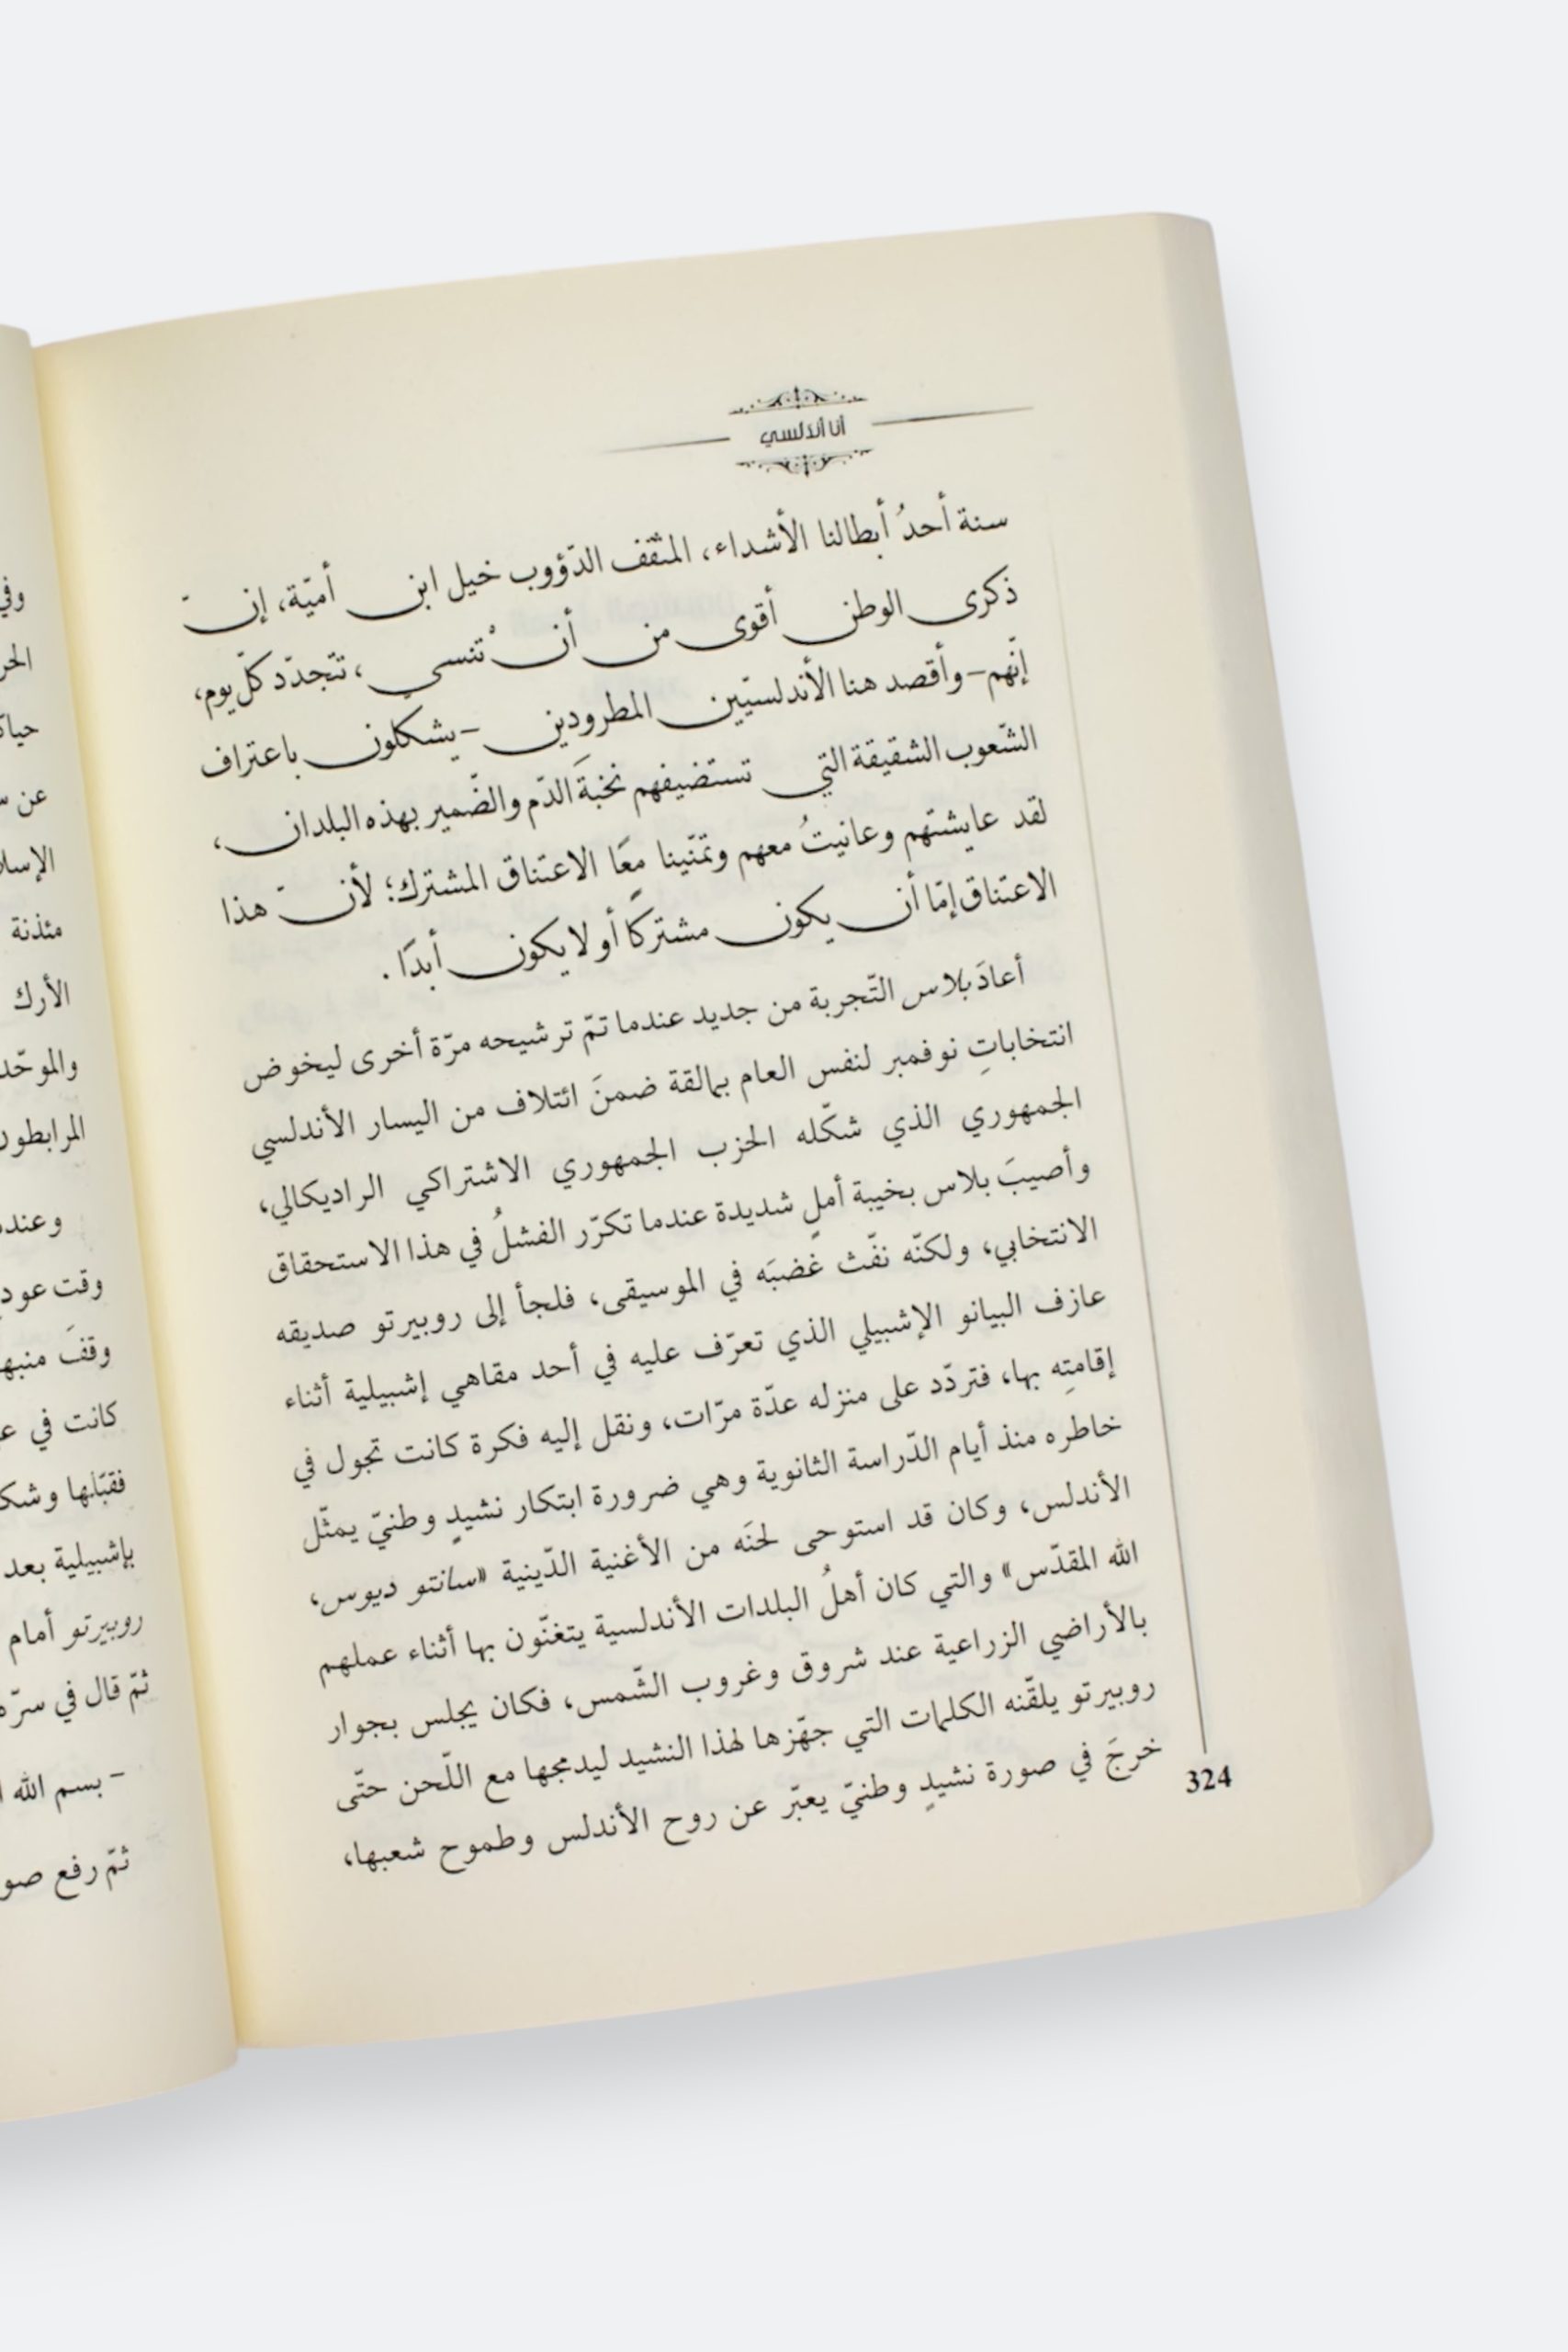 أنا أندلسي
سنة أحدُ أبطالنا الأشداء، المثقف الدّؤوب خيل ابن أميّة، إنّ
ذكرى الوطن أقوى من أنْ تنسى، تتجدّد كلّ يوم،
إنّهم - وأقصد هنا الأندلسيّين المطرودين - يشكلون باعتراف
الشّعوب الشقيقة التي تستضيفهم نخبةَ الدّم والضّمير بهذه البلدان،
لقد عايشتهم وعانيتُ معهم وتمنّينا معًا الاعتناق المشترك؛ لأنّ هذا
الاعتناق إمّا أن يكون مشتركًا أو لا يكون أبدًا.
أعادَ بلاس التّجربة من جديد عندما تمّ ترشيحه مرّة أخرى ليخوض
انتخاباتِ نوفمبر لنفس العام بمالقة ضمنَ ائتلاف من اليسار الأندلسي
الجمهوري الذي شكّله الحزب الجمهوري الاشتراكي الراديكالي،
وأصيبَ بلاس بخيبة أملٍ شديدة عندما تكرّر الفشلُ في هذا الاستحقاق
الانتخابي، ولكنّه نفّث غضبَه في الموسيقى، فلجأ إلى روبيرتو صديقه
عازف البيانو الإشبيلي الذي تعرّف عليه في أحد مقاهي إشبيلية أثناء
إقامتِه بها، فتردّد على منزله عدّة مرّات، ونقل إليه فكرة كانت تجول في
خاطره منذ أيام الدّراسة الثانوية وهي ضرورة ابتكار نشيدٍ وطنيّ يمثّل
الأندلس، وكان قد استوحى لحنَه من الأغنية الدّينية «سانتو ديوس،
الله المقدّس» والتي كان أهلُ البلدات الأندلسية يتغنّون بها أثناء عملهم
بالأراضي الزراعية عند شروق وغروب الشّمس، فكان يجلس بجوار
روبيرتو يلقّنه الكلمات التي جهّزها لهذا النشيد ليدمجها مع اللّحن حتّى
خرجَ في صورة نشيدٍ وطنيّ يعبّر عن روح الأندلس وطموح شعبها،
324
وفي
عن
مئذنة
الأرك
المرابطون
وقفَ
كانت في
فقبّلها
بإشبيلية بعد
روبيرتو أمام
ثمّ قال في سرّه
- بسم الله
ثمّ رفع